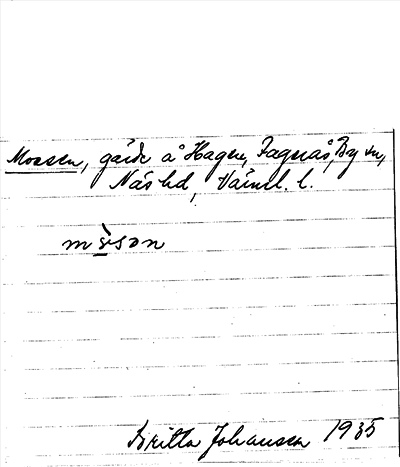 Mossen, gärde å Hagen, Fagerås, By sn,
Näs hd, Värml. l.
mòsən
Britta Johansson 1935